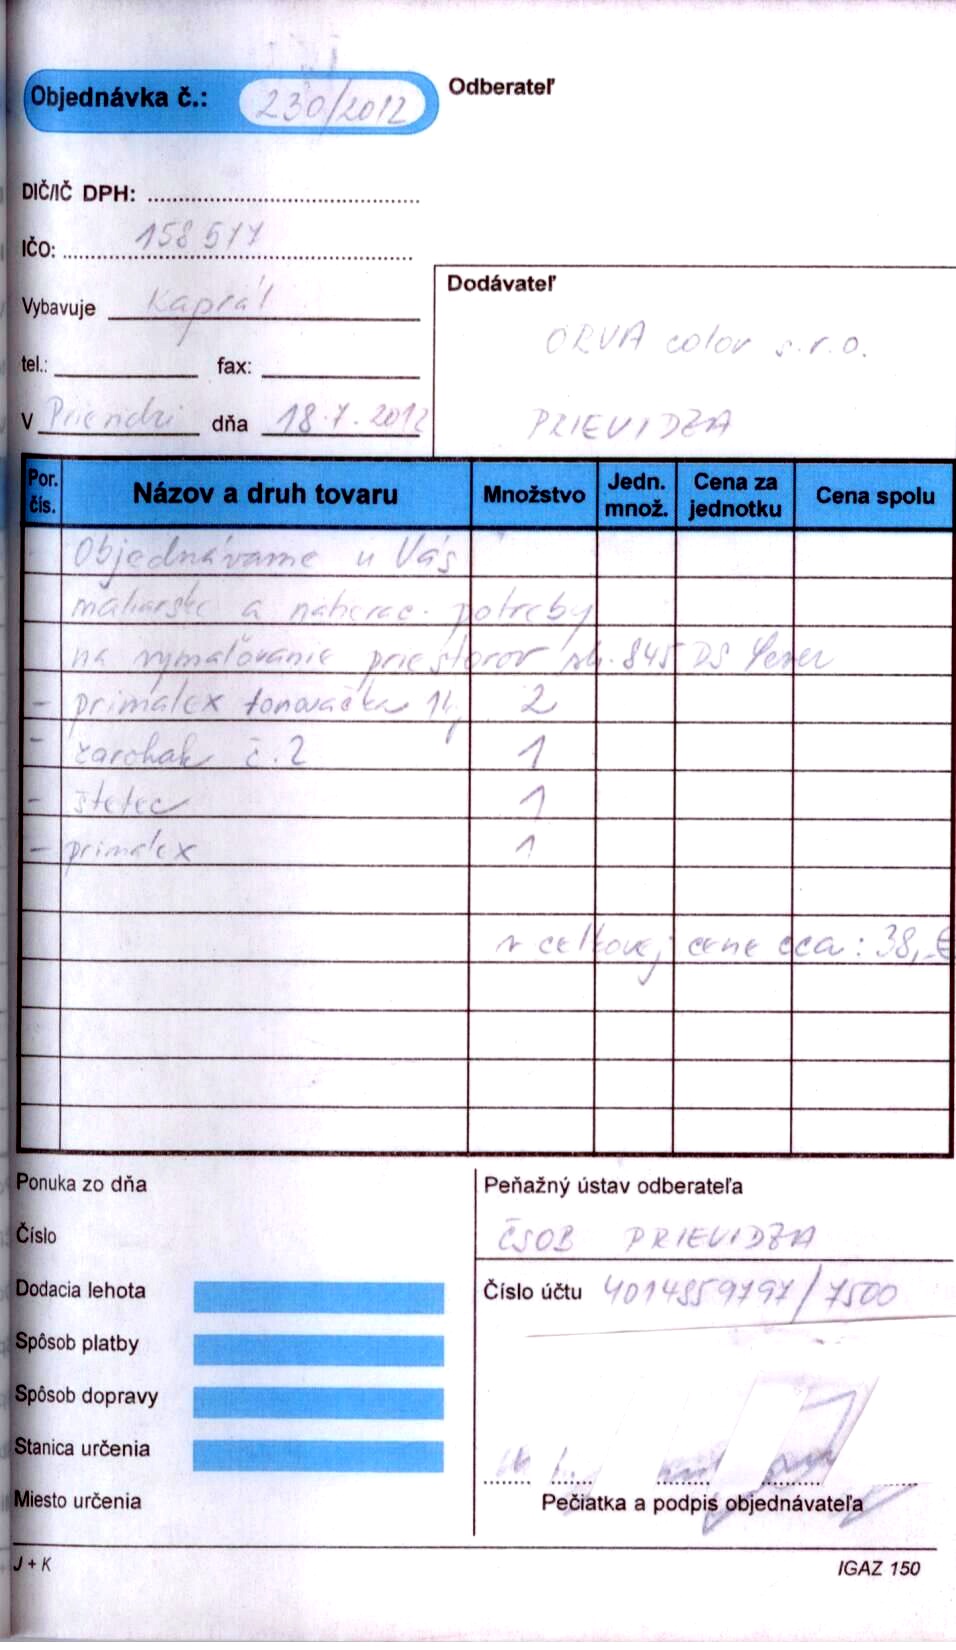 Objednávka č.: 230/2012
Odberateľ
DIČ/IČ DPH:
IČO: 158 577
Vybavuje Kaprál
tel.: fax:
V dňa 18.7.2012
Dodávateľ
ORVA color s.r.o.
PRIEVIDZA
Por. čís. Názov a druh tovaru Množstvo Jedn. množ. Cena za jednotku Cena spolu
- Objednávame u Vás
maliarske a potreby
na vymaľovanie priestorov 845 DS
- primalex tonovačka 2
- č.2 1
- štetec 1
- primalex 1
v celkovej cene cca: 38,-€
Ponuka zo dňa
Číslo
Dodacia lehota
Spôsob platby
Spôsob dopravy
Stanica určenia
Miesto určenia
Peňažný ústav odberateľa
ČSOB PRIEVIDZA
Číslo účtu 4014859797/7500
Pečiatka a podpis objednávateľa
J + K
IGAZ 150